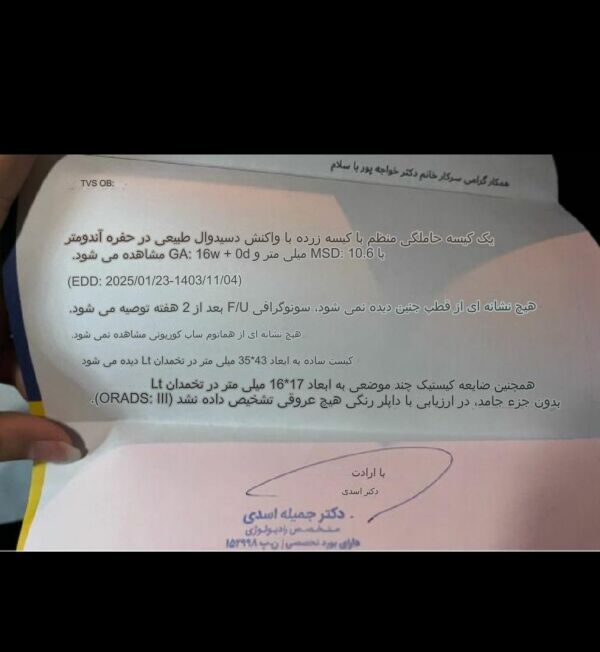 همکار گرامی سرکار خانم دکتر خواجه پور با سلام
TVS OB:
یک کیسه حاملگی منظم با کیسه زرده با واکنش دسیدوال طبیعی در حفره آندومتر
با MSD: 10.6 میلی متر و GA: 16w + 0d مشاهده می شود.
(EDD: 2025/01/23-1403/11/04)
هیچ نشانه ای از قطب جنین دیده نمی شود، سونوگرافی F/U بعد از 2 هفته توصیه می شود.
هیچ نشانه ای از هماتوم ساب کوریونی مشاهده نمی شود.
کیست ساده به ابعاد 43*35 میلی متر در تخمدان Lt دیده می شود
همچنین ضایعه کیستیک چند موضعی به ابعاد 17*16 میلی متر در تخمدان Lt
بدون جزء جامد، در ارزیابی با داپلر رنگی هیچ عروقی تشخیص داده نشد (ORADS: III).
با ارادت
دکتر اسدی
دکتر جمیله اسدی
متخصص رادیولوژی
دارای بورد تخصصی/ ن.پ ۱۵۲۹۹۸